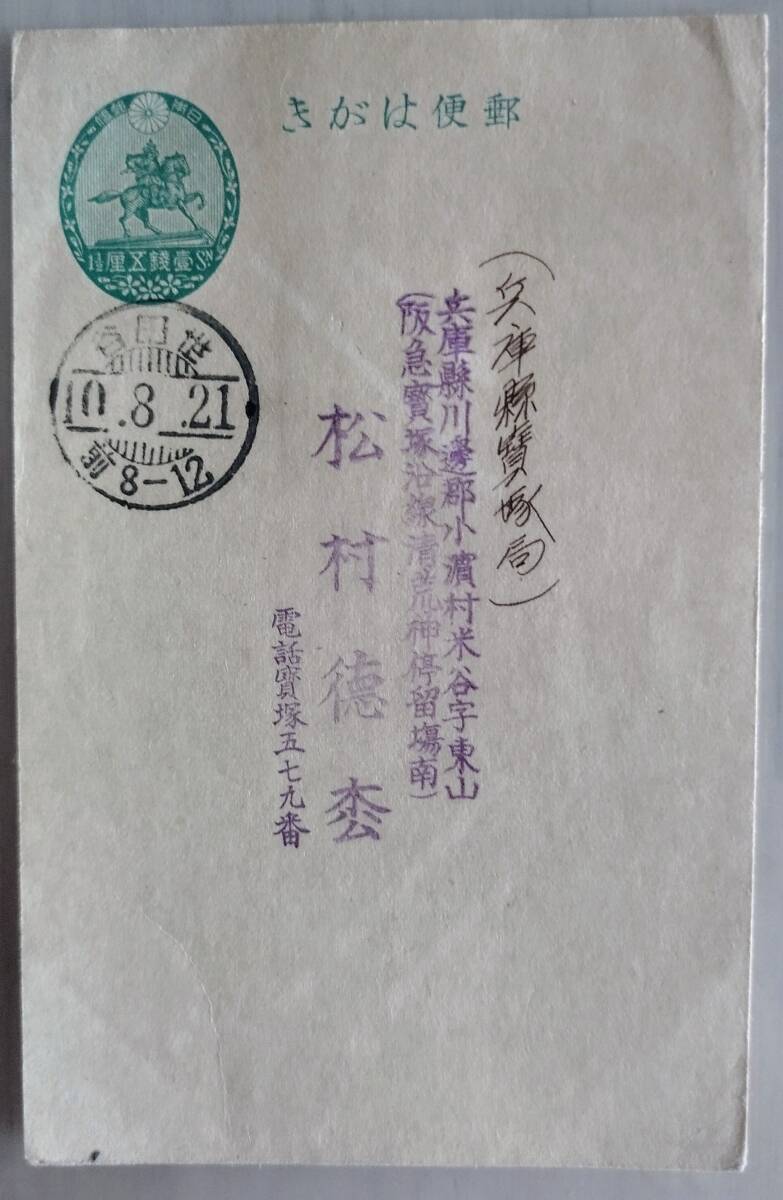 郵便はがき
日本郵便
壹錢五厘
1½ SN.
10.8.21
前8-12
(兵庫縣寶塚局)
兵庫縣川邊郡小濱村米谷字東山
(阪急寶塚沿線清荒神停留塲南)
松村德枩
電話寶塚五七九番